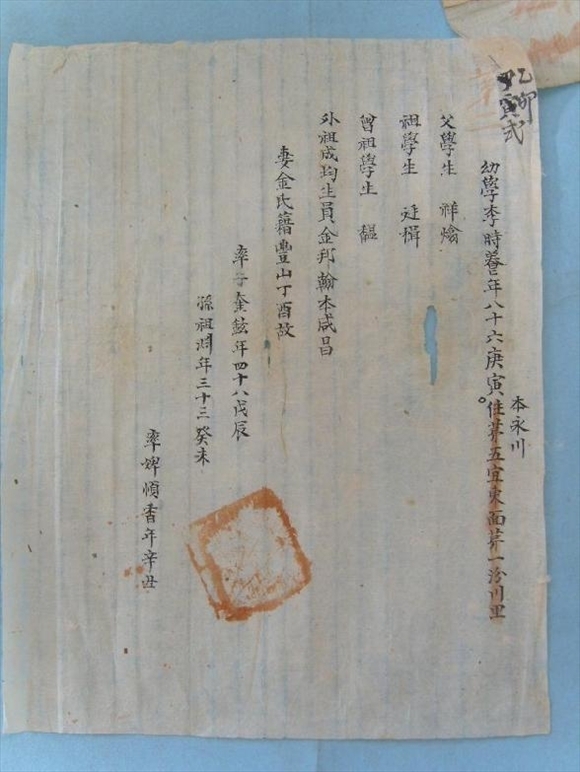 乙卯
寅弍
幼學李時 年八十六庚寅 本永川 住第五宜東面第一汾川里
父學生 祥
祖學生 廷楫
曾祖學生
外祖成均生員金邦翰本咸昌
妻金氏籍豐山丁酉故
率子奎鉉年四十八戊辰
孫祖 年三十三癸未
率婢順香年辛丑